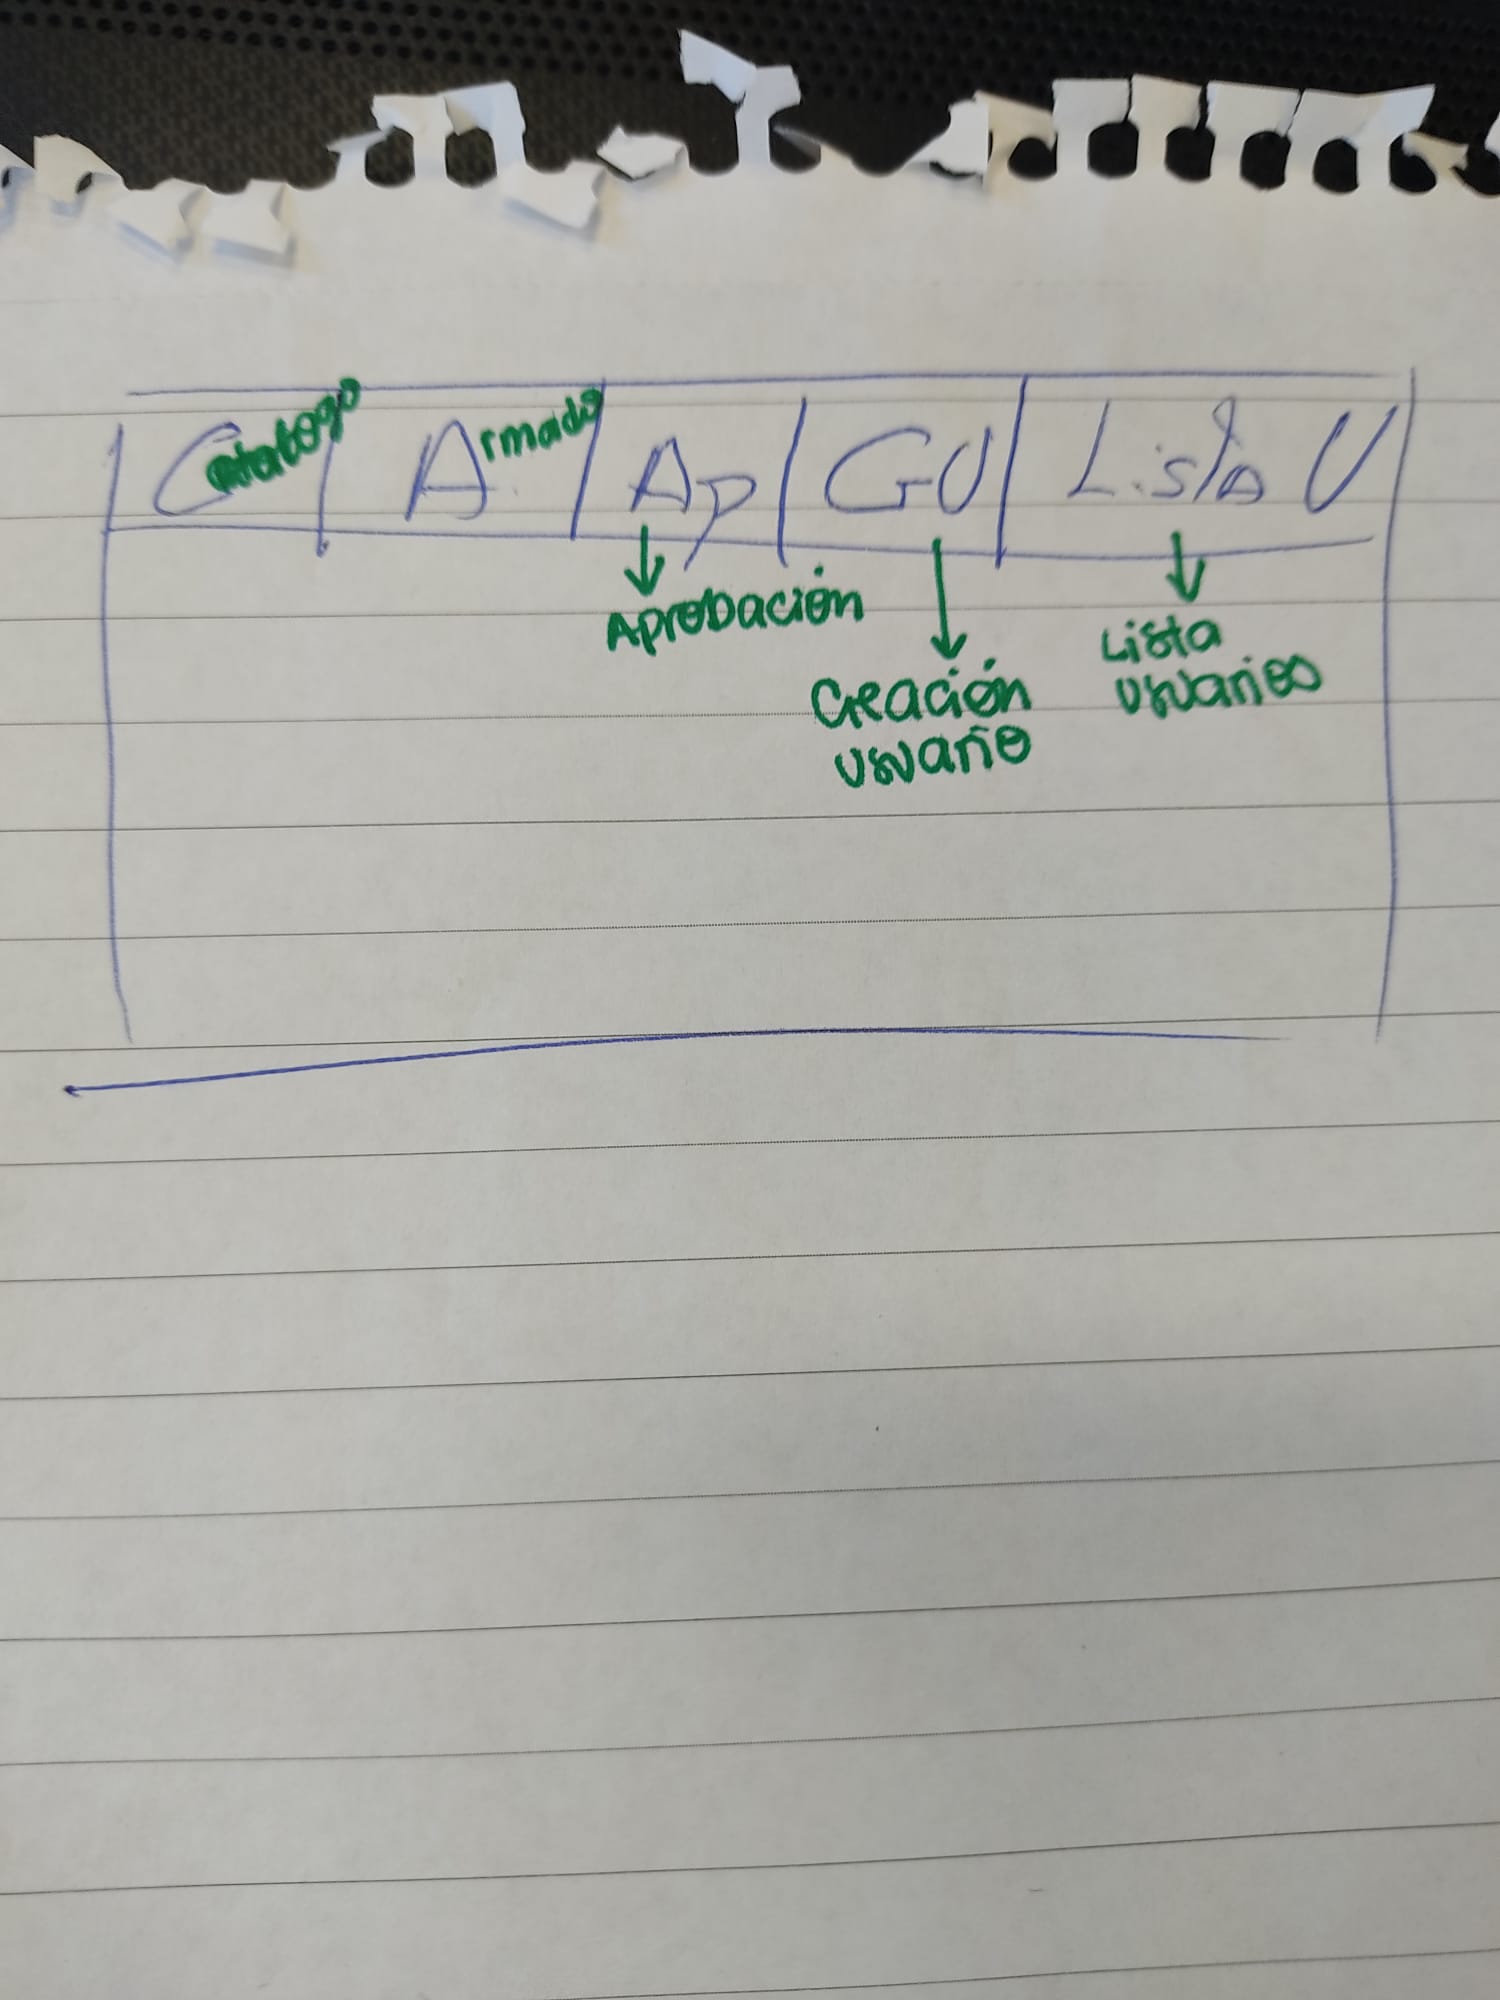 Catalogo Armado Ap GU Lista U
Aprobación
Creación
usuario
Lista
usuarios